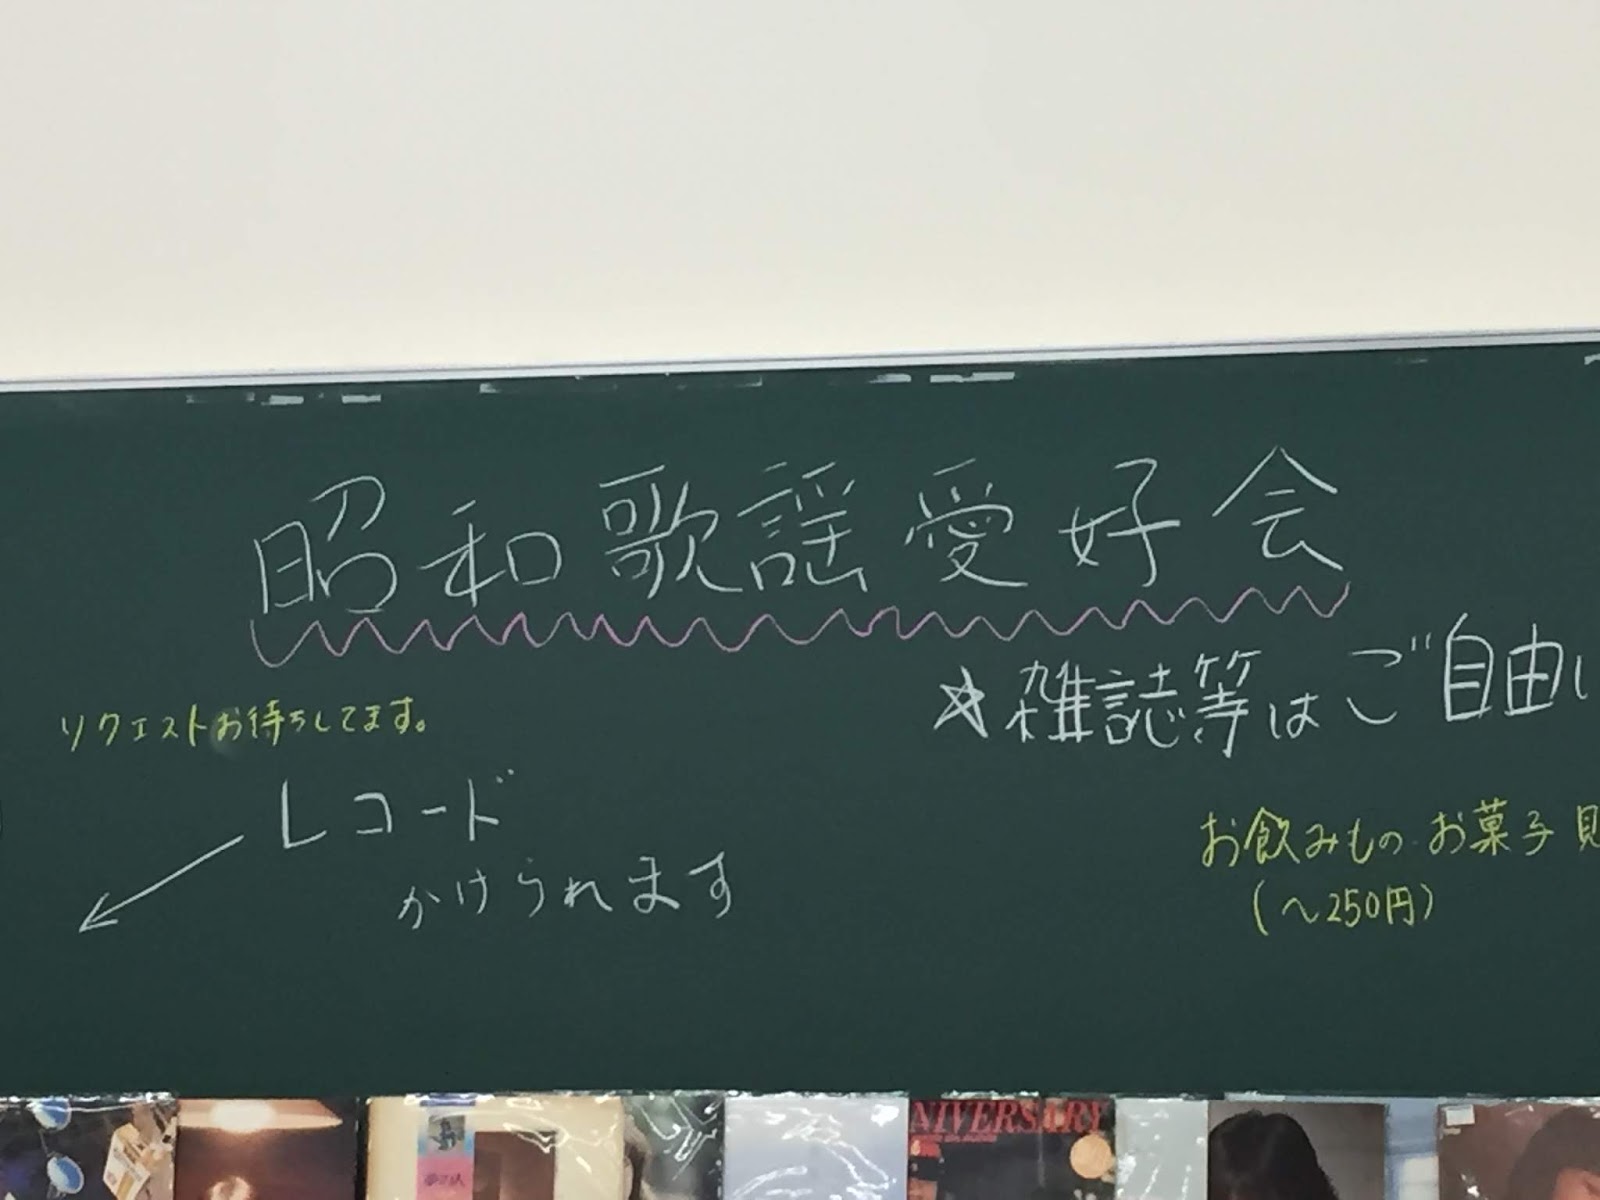 昭和歌謡愛好会
リクエストお待ちしてます。
レコード
かけられます
☆雑誌等はご自由に
お飲みもの・お菓子
(～250円)
NIVERSARY